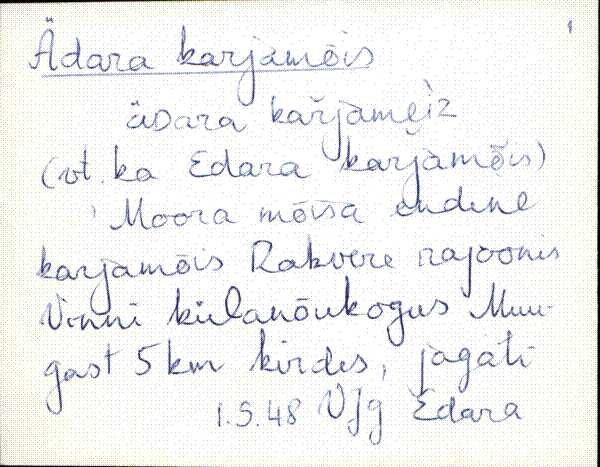 1
Ädara karjamõis
äDara kaŕjamẹìz
(vt. ka Edara karjamõis)
Moora mõisa endine
karjamõis Rakvere rajoonis
Vinni külanõukogus Muu-
gast 5 km kirdes, jagati
1.S.48 VJg Edara